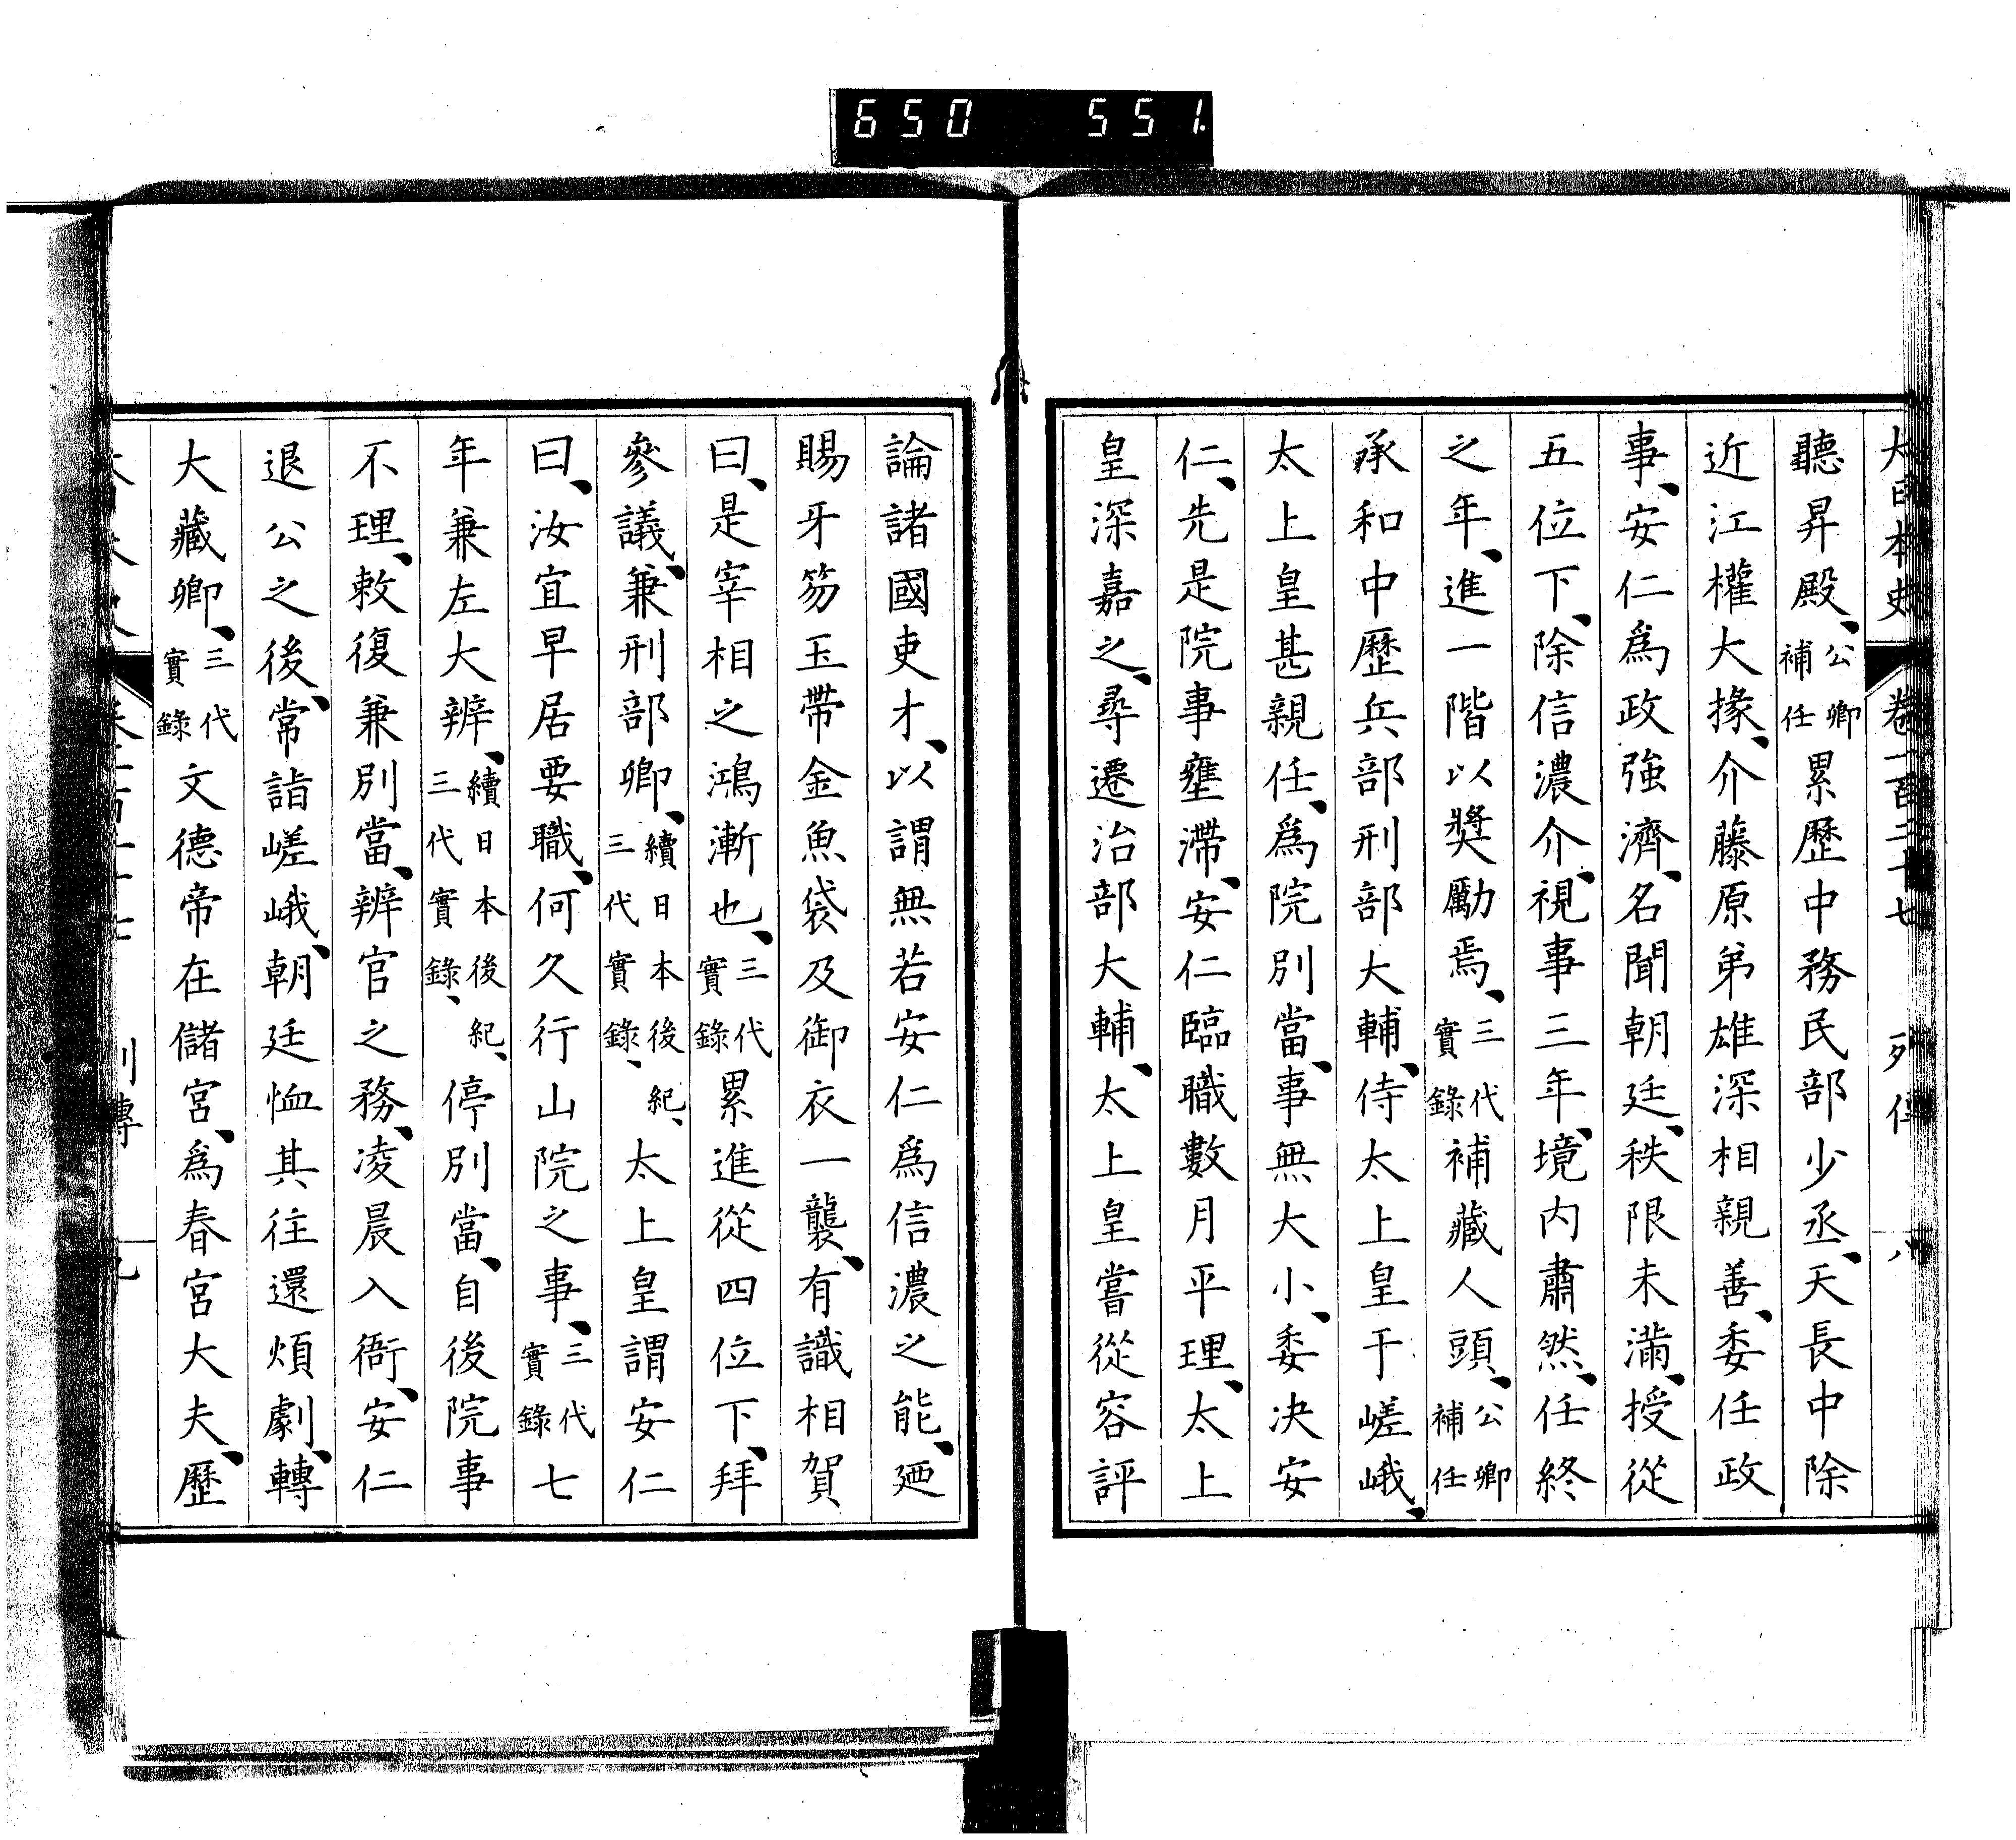 650 551.
大日本史 卷一百二十七 列傳 八
聽昇殿、公卿補任累歷中務民部少丞、天長中除
近江權大掾、介藤原弟雄深相親善、委任政
事、安仁爲政強濟、名聞朝廷、秩限未滿、授從
五位下、除信濃介、視事三年、境内肅然、任終
之年、進一階以奬勵焉、三代實錄補藏人頭、公卿補任
承和中歷兵部刑部大輔、侍太上皇于嵯峨、
太上皇甚親任、爲院別當、事無大小、委决安
仁、先是院事壅滯、安仁臨職數月平理、太上
皇深嘉之、尋遷治部大輔、太上皇嘗從容評
論諸國吏才、以謂無若安仁爲信濃之能、廼
賜牙笏玉帶金魚袋及御衣一襲、有識相賀
曰、是宰相之鴻漸也、三代實錄累進從四位下、拜
參議、兼刑部卿、續日本後紀、三代實錄、太上皇謂安仁
曰、汝宜早居要職、何久行山院之事、三代實錄七
年兼左大辨、續日本後紀、三代實錄、停別當、自後院事
不理、敕復兼別當、辨官之務、凌晨入衙、安仁
退公之後、常詣嵯峨、朝廷恤其往還煩劇、轉
大藏卿、三代實錄文德帝在儲宮、爲春宮大夫、歷